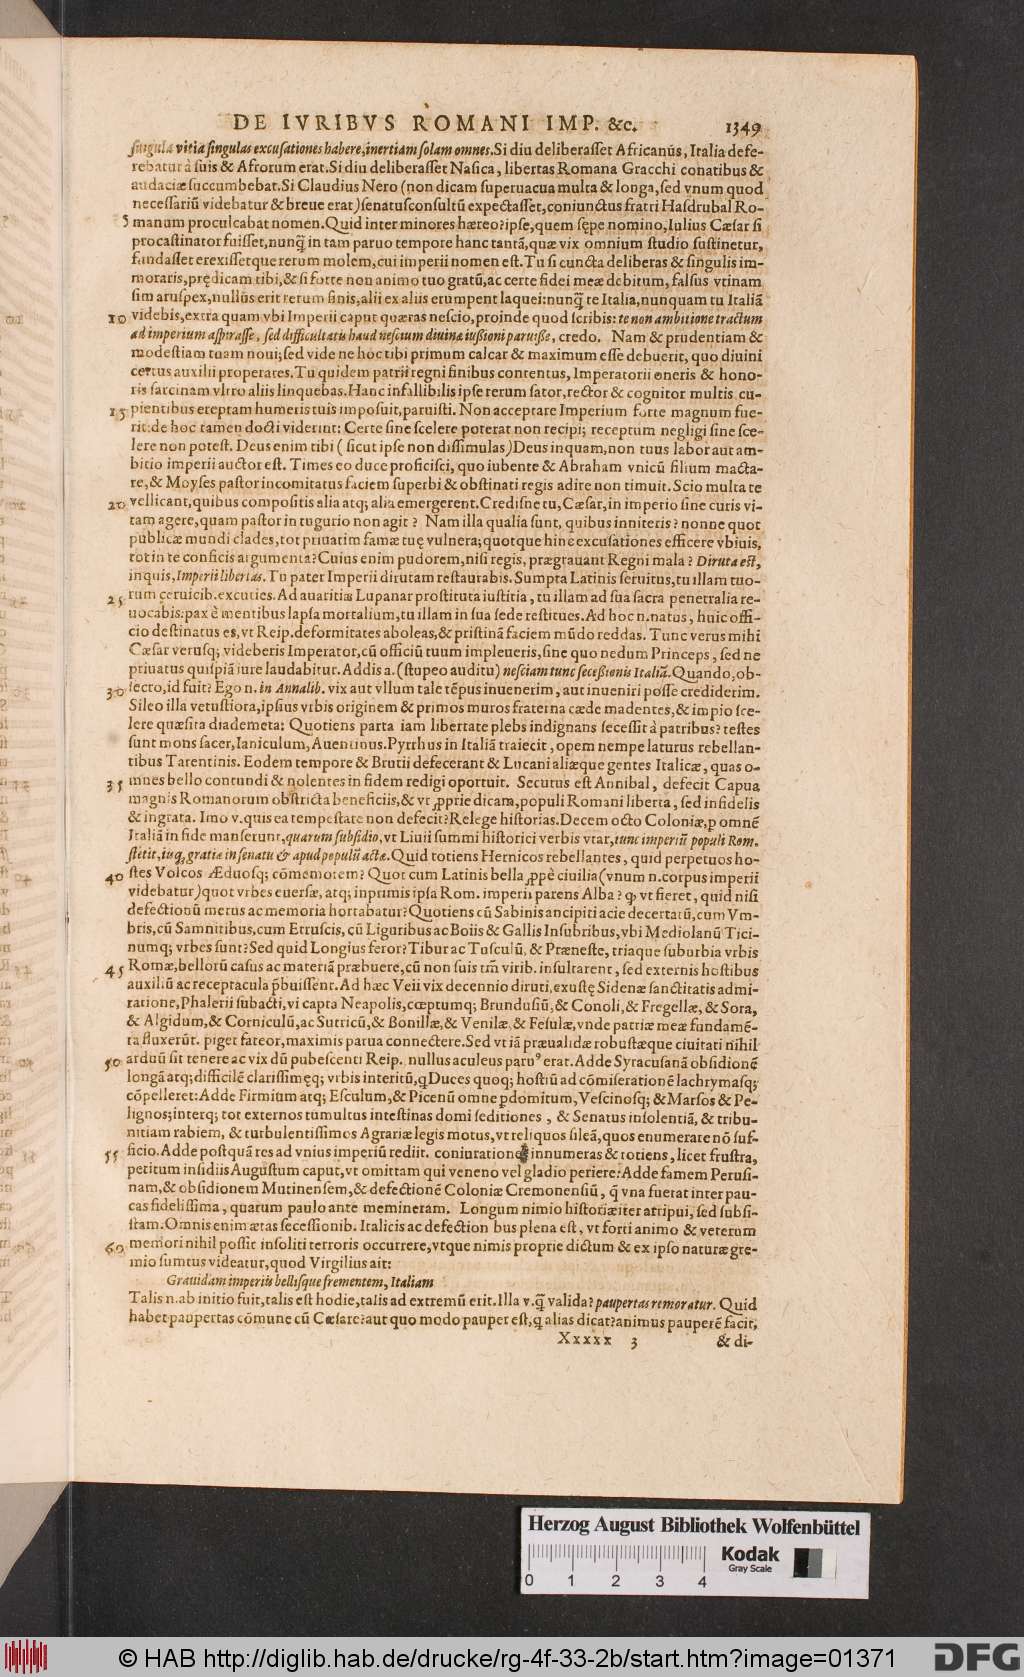 DE IVRIBVS ROMANI IMP. &c. 1349
singula vitia singulas excusationes habere, inertiam solam omnes. Si diu deliberasset Africanus, Italia defe-
rebatur à suis & Afrorum erat. Si diu deliberasset Nasica, libertas Romana Gracchi conatibus &
audaciæ succumbebat. Si Claudius Nero (non dicam superuacua multa & longa, sed vnum quod
necessariũ videbatur & breue erat) senatusconsultũ expectasset, coniunctus fratri Hasdrubal Ro-
5 manum proculcabat nomen. Quid inter minores hæreo? ipse, quem sępe nomino, Iulius Cæsar si
procastinator fuisset, nunq̃ in tam paruo tempore hanc tantã, quæ vix omnium studio sustinetur,
fundasset erexissetque rerum molem, cui imperii nomen est. Tu si cuncta deliberas & singulis im-
moraris, prędicam tibi, & si forte non animo tuo gratũ, ac certe fidei meæ debitum, falsus vtinam
sim aruspex, nullus erit rerum finis, alii ex aliis erumpent laquei: nunq̃ te Italia, nunquam tu Italiã
10 videbis, extra quam vbi Imperii caput quæras nescio, proinde quod scribis: te non ambitione tractum
ad imperium aspirasse, sed difficultatis haud nescium diuinæ iussioni paruisse, credo. Nam & prudentiam &
modestiam tuam noui; sed vide ne hoc tibi primum calcar & maximum esse debuerit, quo diuini
certus auxilii properares. Tu quidem patrii regni finibus contentus, Imperatorii oneris & hono-
ris sarcinam vltro aliis linquebas. Hanc infallibilis ipse rerum sator, rector & cognitor multis cu-
15 pientibus ereptam humeris tuis imposuit, paruisti. Non acceptare Imperium forte magnum fue-
rit: de hoc tamen docti viderint: Certe sine scelere poterat non recipi; receptum negligi sine sce-
lere non potest. Deus enim tibi ( sicut ipse non dissimulas) Deus inquam, non tuus labor aut am-
bitio imperii auctor est. Times eo duce proficisci, quo iubente & Abraham vnicũ filium macta-
re, & Moyses pastor incomitatus faciem superbi & obstinati regis adire non timuit. Scio multa te
20 vellicant, quibus compositis alia atq; alia emergerent. Credisne tu, Cæsar, in imperio sine curis vi-
tam agere, quam pastor in tugurio non agit ? Nam illa qualia sunt, quibus inniteris ? nonne quot
publicæ mundi clades, tot priuatim famæ tuę vulnera; quotque hinc excusationes efficere vbiuis,
tot in te conficis argumenta? Cuius enim pudorem, nisi regis, prægrauant Regni mala ? Diruta est,
inquis, Imperii libertas. Tu pater Imperii dirutam restaurabis. Sumpta Latinis seruitus, tu illam tuo-
25 rum ceruicib. excuties. Ad auaritiæ Lupanar prostituta iustitia, tu illam ad sua sacra penetralia re-
uocabis: pax è mentibus lapsa mortalium, tu illam in sua sede restitues. Ad hoc n. natus, huic offi-
cio destinatus es, vt Reip. deformitates aboleas, & pristinã faciem mũdo reddas. Tunc verus mihi
Cæsar verusq; videberis Imperator, cũ officiũ tuum impleueris, sine quo nedum Princeps, sed ne
priuatus quispiã iure laudabitur. Addis a. (stupeo auditu) nesciam tunc secessionis Italiã. Quando, ob-
30 secro, id fuit? Ego n. in Annalib. vix aut vllum tale tẽpus inuenerim, aut inueniri posse crediderim.
Sileo illa vetustiora, ipsius vrbis originem & primos muros fraterna cæde madentes, & impio sce-
lere quæsita diademeta; Quotiens parta iam libertate plebs indignans secessit à patribus? testes
sunt mons sacer, Ianiculum, Auentinus. Pyrrhus in Italiã traiecit, opem nempe laturus rebellan-
tibus Tarentinis. Eodem tempore & Brutii defecerant & Lucani aliæque gentes Italicæ, quas o-
35 mnes bello contundi & nolentes in fidem redigi oportuit. Secutus est Annibal, defecit Capua
magnis Romanorum obstricta beneficiis, & vt ꝓprie dicam, populi Romani liberta, sed infidelis
& ingrata. Imo v. quis ea tempestate non defecit? Relege historias. Decem octo Coloniæ, p omnẽ
Italiã in fide manserunt, quarum subsidio, vt Liuii summi historici verbis vtar, tunc imperiũ populi Rom.
stetit, iisq; gratiæ in senatu & apud populũ actæ. Quid totiens Hernicos rebellantes, quid perpetuos ho-
40 stes Volcos Æduosq; cõmemorem? Quot cum Latinis bella ꝓppè ciuilia (vnum n. corpus imperii
videbatur) quot vrbes euersæ, atq; inprimis ipsa Rom. imperii parens Alba ? ꝙ vt fieret, quid nisi
defectionũ metus ac memoria hortabatur? Quotiens cũ Sabinis ancipiti acie decertatũ, cum Vm-
bris, cũ Samnitibus, cum Etruscis, cũ Liguribus ac Boiis & Gallis Insubribus, vbi Mediolanũ Tici-
numq; vrbes sunt? Sed quid Longius feror? Tibur ac Tusculũ, & Præneste, triaque suburbia vrbis
45 Romæ, bellorũ casus ac materiã præbuere, cũ non suis tm̃ virib. insultarent, sed externis hostibus
auxiliũ ac receptacula p̃buissent. Ad hæc Veii vix decennio diruti, exustę Sidenæ sanctitatis admi-
ratione, Phalerii subacti, vi capta Neapolis, cœptumq; Brundusiũ, & Conoli, & Fregellæ, & Sora,
& Algidum, & Corniculũ, ac Sutricũ, & Bonillæ, & Venilæ & Fesulæ, vnde patriæ meæ fundamẽ-
ta fluxerũt. piget fateor, maximis parua connectere. Sed vt iã præualidæ robustæque ciuitati nihil
50 arduũ sit tenere ac vix dũ pubescenti Reip. nullus aculeus paruꝰ erat. Adde Syracusanã obsidionẽ
longã atq; difficilẽ clarissimęq; vrbis interitũ, q Duces quoq; hostiũ ad cõmiserationẽ lachrymasq;
cõpelleret: Adde Firmium atq; Esculum, & Picenũ omne ꝑdomitum, Vescinosq; & Marsos & Pe-
lignos; interq; tot externos tumultus intestinas domi seditiones , & Senatus insolentiã, & tribu-
nitiam rabiem, & turbulentissimos Agrariæ legis motus, vt reliquos sileã, quos enumerare nõ suf-
55 ficio. Adde postquã res ad vnius imperiũ rediit. coniurationes innumeras & totiens, licet frustra,
petitum insidiis Augustum caput, vt omittam qui veneno vel gladio periere: Adde famem Perusi-
nam, & obsidionem Mutinensem, & defectionẽ Coloniæ Cremonensiũ, q̃ vna fuerat inter pau-
cas fidelissima, quarum paulo ante memineram. Longum nimio historiæ iter atripui, sed subsi-
stam. Omnis enim ætas secessionib. Italicis ac defection bus plena est, vt forti animo & veterum
60 memori nihil possit insoliti terroris occurrere, vtque nimis proprie dictum & ex ipso naturæ gre-
mio sumtus videatur, quod Virgilius ait:
Grauidam imperiis bellisque frementem, Italiam
Talis n. ab initio fuit, talis est hodie, talis ad extremũ erit. Illa v. q̃ valida? paupertas remoratur. Quid
habet paupertas cõmune cũ Cæsare? aut quo modo pauper est, q alias dicat? animus pauperẽ facit,
Xxxxx 3 & di-
Herzog August Bibliothek Wolfenbüttel
Kodak
Gray Scale
0 1 2 3 4
© HAB http://diglib.hab.de/drucke/rg-4f-33-2b/start.htm?image=01371
DFG